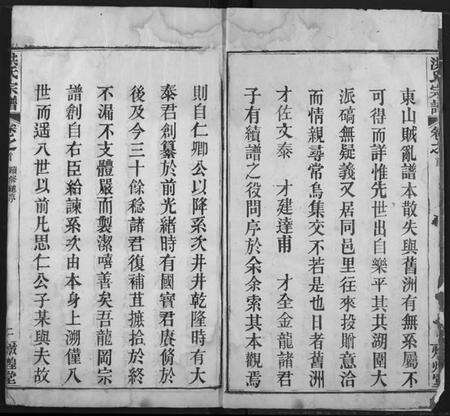 洪氏宗譜
卷之首
東山賊亂譜本散失與舊洲有無系屬不
可得而詳惟先世出自樂平其洪湖園大
派碻無疑義又居同邑里往來投贈意洽
而情親尋常烏集交不若是也日者舊洲
才佐文泰 才建達甫 才全金龍諸君
子有續譜之役問序於余余索其本觀焉
則自仁卿公以降系次井井乾隆時有大
泰君創纂於前光緒時有國寶君賡脩於
後及今三十餘稔諸君復補苴摭拾於終
不漏不支體嚴而製潔嘻善矣吾龍岡宗
譜創自右臣給諫系次由本身上溯僅八
世而遇八世以前凡思仁公子某與夫故
洪氏宗譜
卷之首
二
敦煌堂